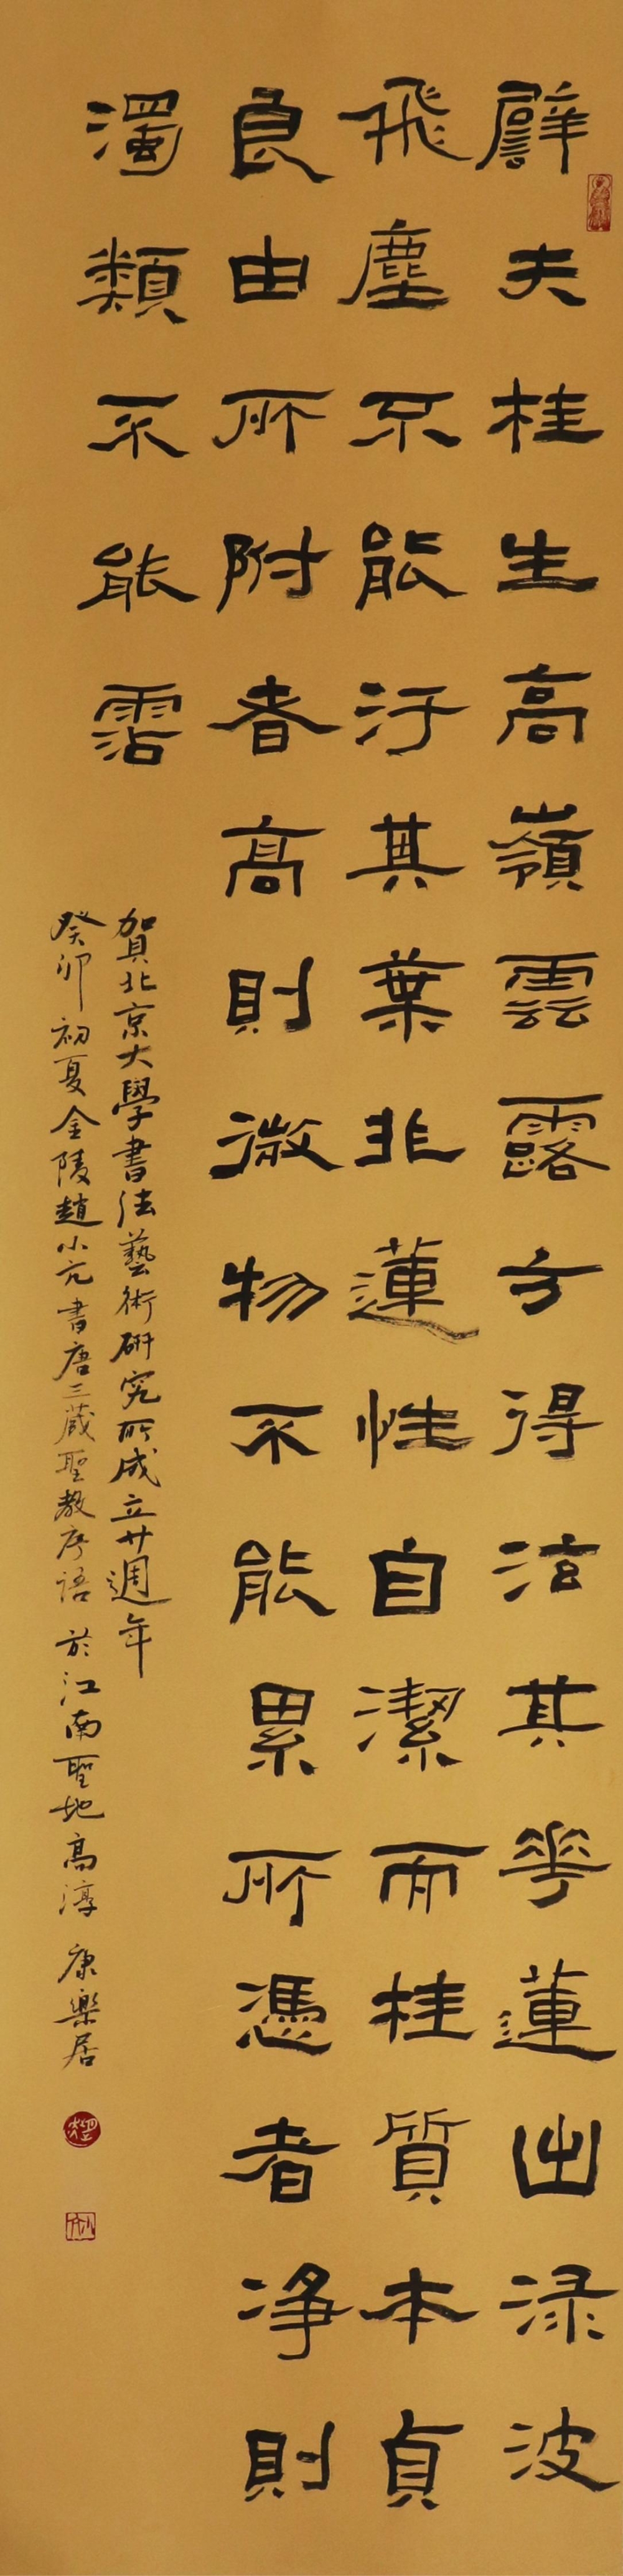 譬夫桂生高嶺雲露方得泫其花蓮出渌波
飛塵不能汙其葉非蓮性自潔而桂質本貞
良由所附者高則微物不能累所憑者净則
濁類不能霑
賀北京大學書法藝術研究所成立廿週年
癸卯初夏金陵趙小亢書唐三藏聖教序語於江南聖地高淳康樂居